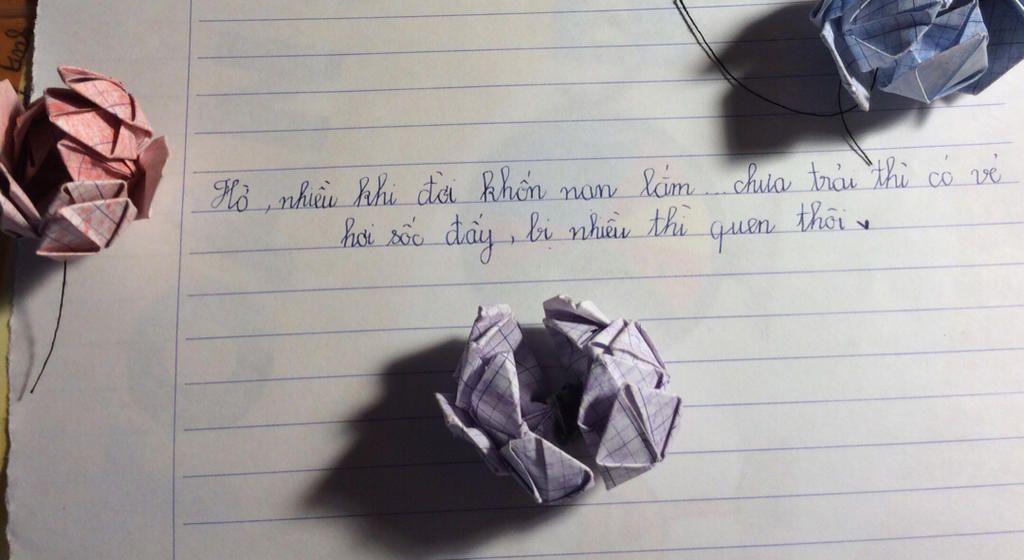 Hờ, nhiều khi đời khốn nạn lắm... chưa trải thì có vẻ
hơi sốc đấy, bị nhiều thì quen thôi